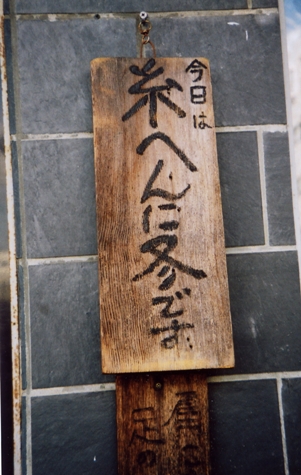 今日は
糸へんに冬です。
足の